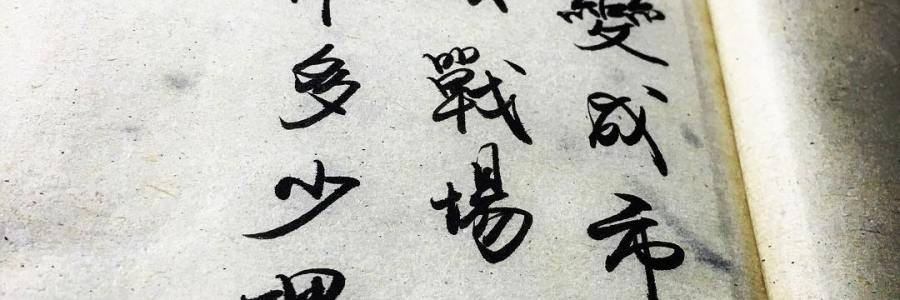 變成市
戰場
多少理